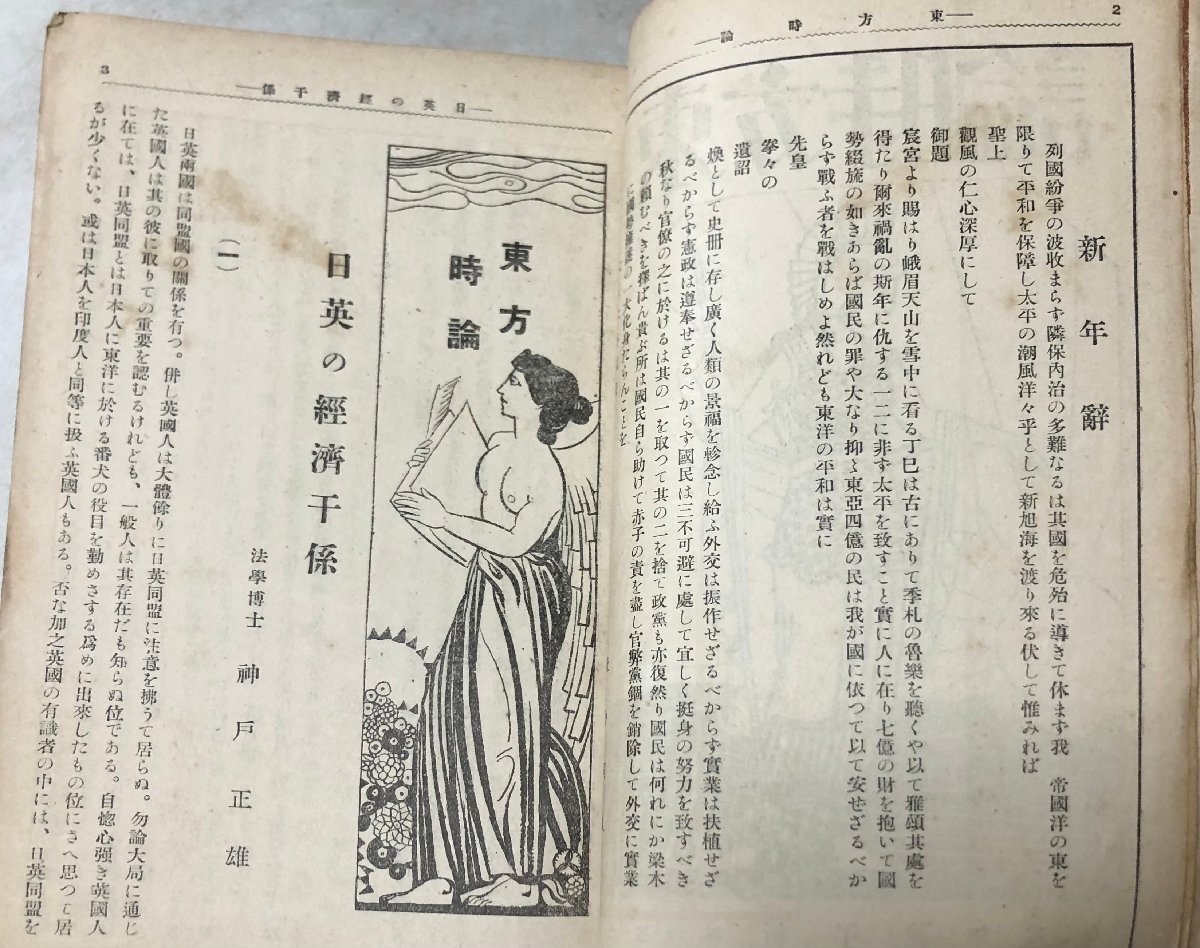 2
―東方時論―
新年辭
列國紛爭の波收まらず隣保內治の多難なるは其國を危殆に導きて休まず我　帝國洋の東を
限りて平和を保障し太平の潮風洋々乎として新旭海を渡り來る伏して惟みれば
聖上
觀風の仁心深厚にして
御題
宸宮より賜はり峨眉天山を雪中に看る丁巳は古にありて季札の魯樂を聽くや以て雅頌其處を
得たり爾來禍亂の斯年に仇する一二に非ず太平を致すこと實に人に在り七億の財を抱いて國
勢綴旒の如きあらば國民の罪や大なり抑〻東亞四億の民は我が國に依つて以て安ぜざるべか
らず戰ふ者を戰はしめよ然れども東洋の平和は實に
先皇
拳々の
遺詔
煥として史册に存し廣く人類の景福を軫念し給ふ外交は振作せざるべからず實業は扶植せざ
るべからず憲政は遵奉せざるべからず國民は三不可避に處して宜しく挺身の努力を致すべき
秋なり官僚の之に於けるは其の一を取つて其の二を捨て政黨も亦復然り國民は何れにか梁木
の賴むべきを擇ばん貴ぶ所は國民自ら助けて赤子の責を盡し官弊黨錮を銷除して外交に實業
3
―日英の經濟干係―
東方
時論
日英の經濟干係
法學博士　神戶正雄
（一）
日英兩國は同盟國の關係を有つ。併し英國人は大體餘りに日英同盟に注意を拂うて居らぬ。勿論大局に通じ
た英國人は其の彼に取りての重要を認むるけれども、一般人は其存在だも知らぬ位である。自惚心强き英國人
に在ては、日英同盟とは日本人に東洋に於ける番犬の役目を勤めさする爲めに出來したもの位にさへ思つて居
るが少くない。或は日本人を印度人と同等に扱ふ英國人もある。否な加之英國の有識者の中には、日英同盟を